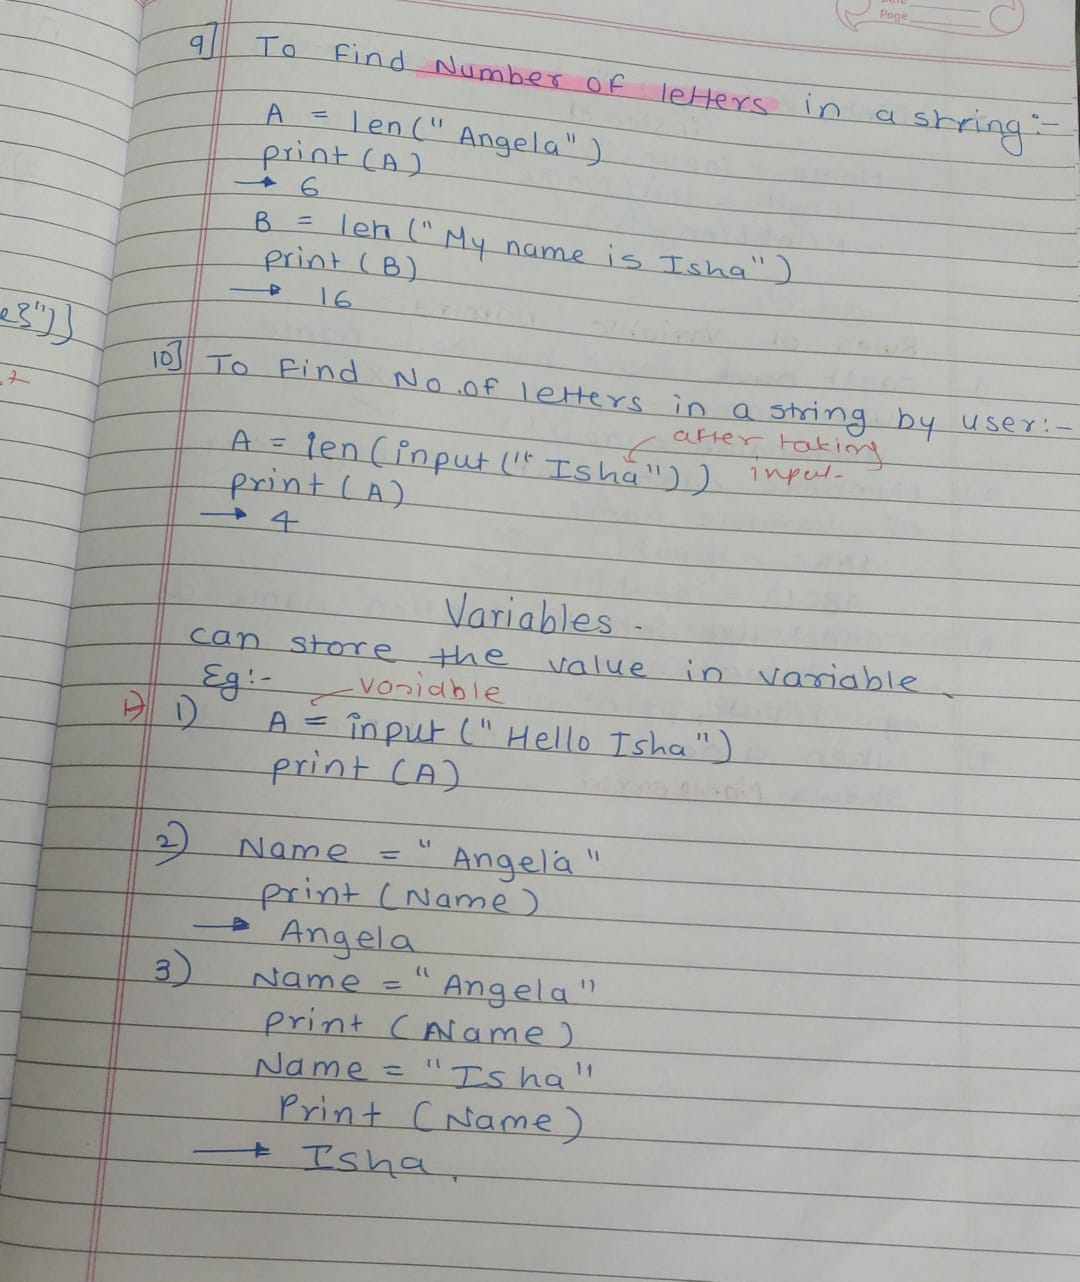 Page
9] To Find Number of letters in a string:-
A = len(" Angela")
print (A)
→ 6
B = len (" My name is Isha")
print (B)
→ 16
e3")]
10] To Find No. of letters in a string by user:-
after taking
A = len (input (" Isha")) input-
print (A)
→ 4
Variables -
can store the value in variable.
Eg:-
variable
1) A = input (" Hello Isha")
print (A)
2) Name = " Angela"
print (Name)
→ Angela
3) Name = "Angela"
print (Name)
Name = "Isha"
Print (Name)
→ Isha.